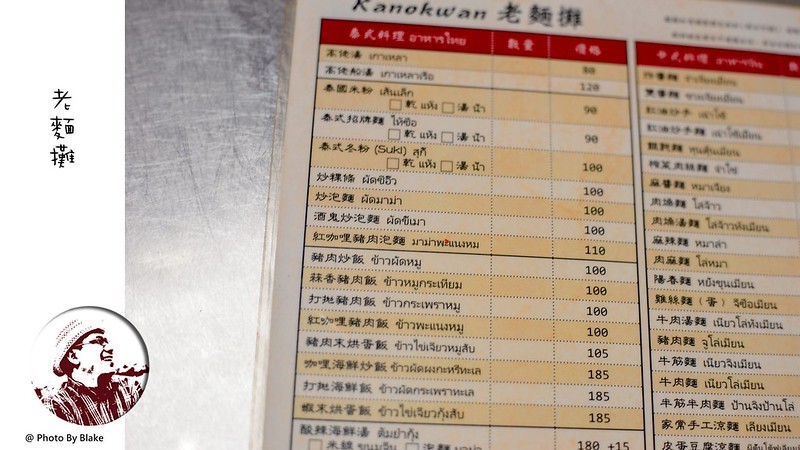 Kanokwan 老麵攤
泰式料理 อาหารไทย 數量 價格
高佬湯 เกาเหลา 80
高佬船湯 เกาเหลาเรือ 120
泰國米粉 เส้นเล็ก
乾 แห้ง 湯 น้ำ 90
泰式招牌麵 ให้ซือ
乾 แห้ง 湯 น้ำ 90
泰式冬粉 (Suki) สุกี้
乾 แห้ง 湯 น้ำ 100
炒粿條 ผัดซีอิ๊ว 100
炒泡麵 ผัดมาม่า 100
酒鬼炒泡麵 ผัดขี้เมา 100
紅咖哩豬肉泡麵 มาม่าพะแนงหมู 110
豬肉炒飯 ข้าวผัดหมู 100
蒜香豬肉飯 ข้าวหมูกระเทียม 100
打拋豬肉飯 ข้าวกระเพราหมู 100
紅咖哩豬肉飯 ข้าวพะแนงหมู 100
豬肉末烘蛋飯 ข้าวไข่เจียวหมูสับ 105
咖哩海鮮炒飯 ข้าวผัดผงกะหรี่ทะเล 185
打拋海鮮飯 ข้าวผัดกระเพราทะเล 185
蝦末烘蛋飯 ข้าวไข่เจียวกุ้งสับ 185
酸辣海鮮湯 ต้มยำกุ้ง
米線 ขนมจีน 泡麵 มาม่า 180 +15
炸醬麵
雙醬麵
紅油抄手
紅油抄手麵
餛飩麵
榨菜肉絲麵
麻醬麵 หมาเจียง
肉燥麵 โล่จ้าว
肉燥湯麵 โล่จ้าวทังเมียน
麻辣麵 หมาล่า
肉麻麵 โล่หมา
陽春麵 หยังชุนเมียน
雞絲麵（蛋） จีซือเมียน
牛肉湯麵 เนียวโล่ทังเมียน
豬肉麵 จูโล่เมียน
牛筋麵 เนียวจิงเมียน
牛肉麵 เนียวโล่เมียน
半筋半肉麵 ป้านจิงป้านโล่
家常手工涼麵 เลียงเมียน
皮蛋豆腐涼麵
老麵攤
@ Photo By Blake